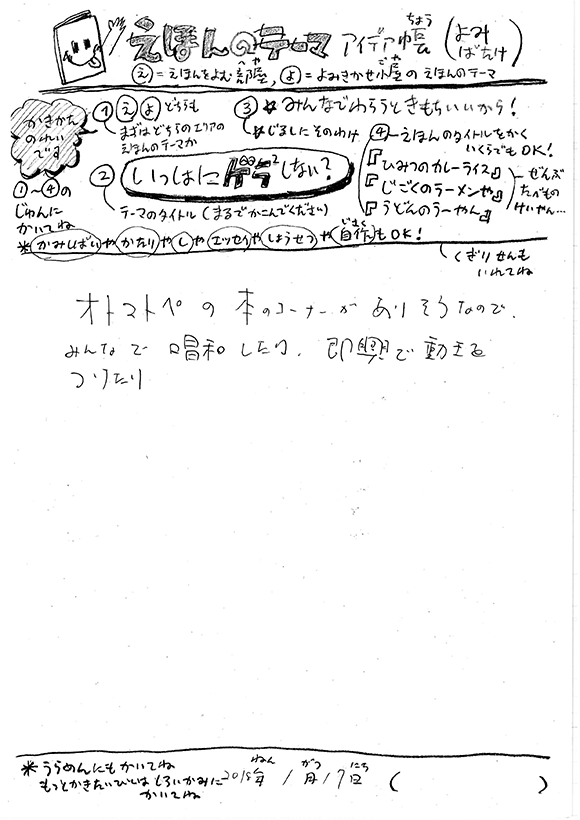 えほんのテーマ アイデア帳 (よみばたけ)
ちょう
え=えほんをよむ部屋、よ=よみきかせ小屋のえほんのテーマ
かきかたのれいです
①〜④の
じゅんに
かいてね
① え よ どちらも
まずはどちらのエリアの
えほんのテーマか
② いっしょに しない?
テーマのタイトル(まるでかこんでください)
③ ☆みんなでわらうときもちいいから!
☆じるしにそのわけ
④ーえほんのタイトルをかく
いくらでもOK!
『ひみつのカレーライス』
『じごくのラーメンや』
『うどんのうーやん』
ぜんぶ
たべもの
けいやん…
*かみしばいやかたりやしやエッセイやしょうせつや自作もOK!
じさく
くぎりせんも
いれてね
オトマトペの本のコーナーがありそうなので、
みんなで唱和したり、即興で動きを
つけたり
*うらめんにもかいてね
もっとかきたいひとはしろいかみに
かいてね
2018年 1月17日 ( )
ねん がつ にち